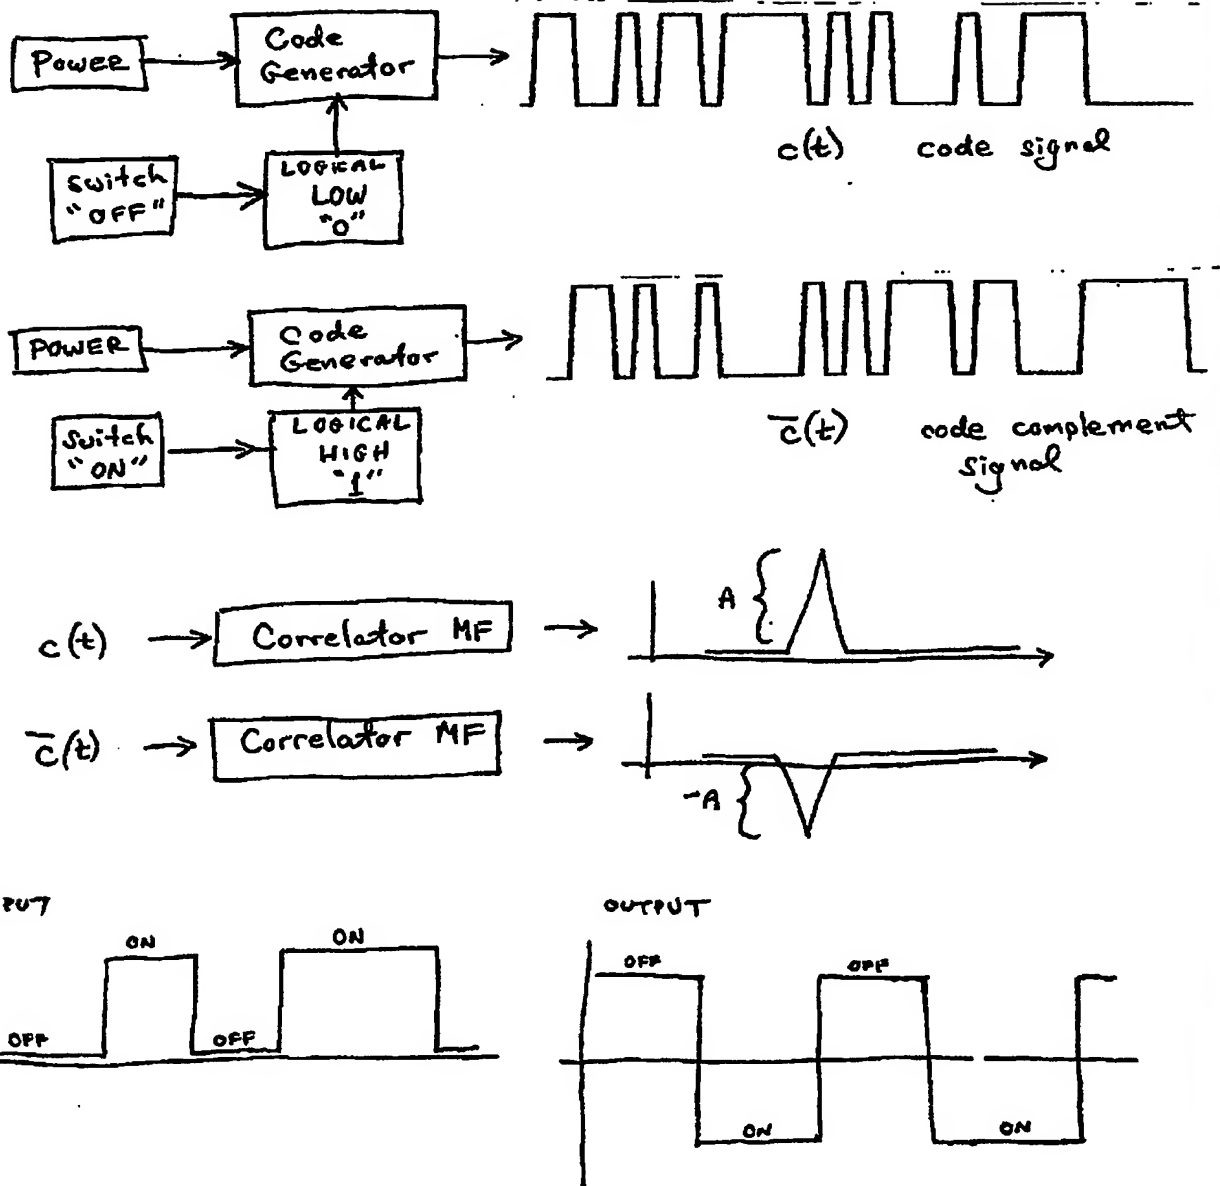 POWER
Code
Generator
Switch
"OFF"
LOGICAL
LOW
"0"
c(t) code signal
POWER
Code
Generator
Switch
"ON"
LOGICAL
HIGH
"1"
c̅(t) code complement
signal
c(t)
Correlator MF
A
c̅(t)
Correlator MF
-A
PUT
OFF
ON
OFF
ON
OUTPUT
OFF
ON
OFF
ON